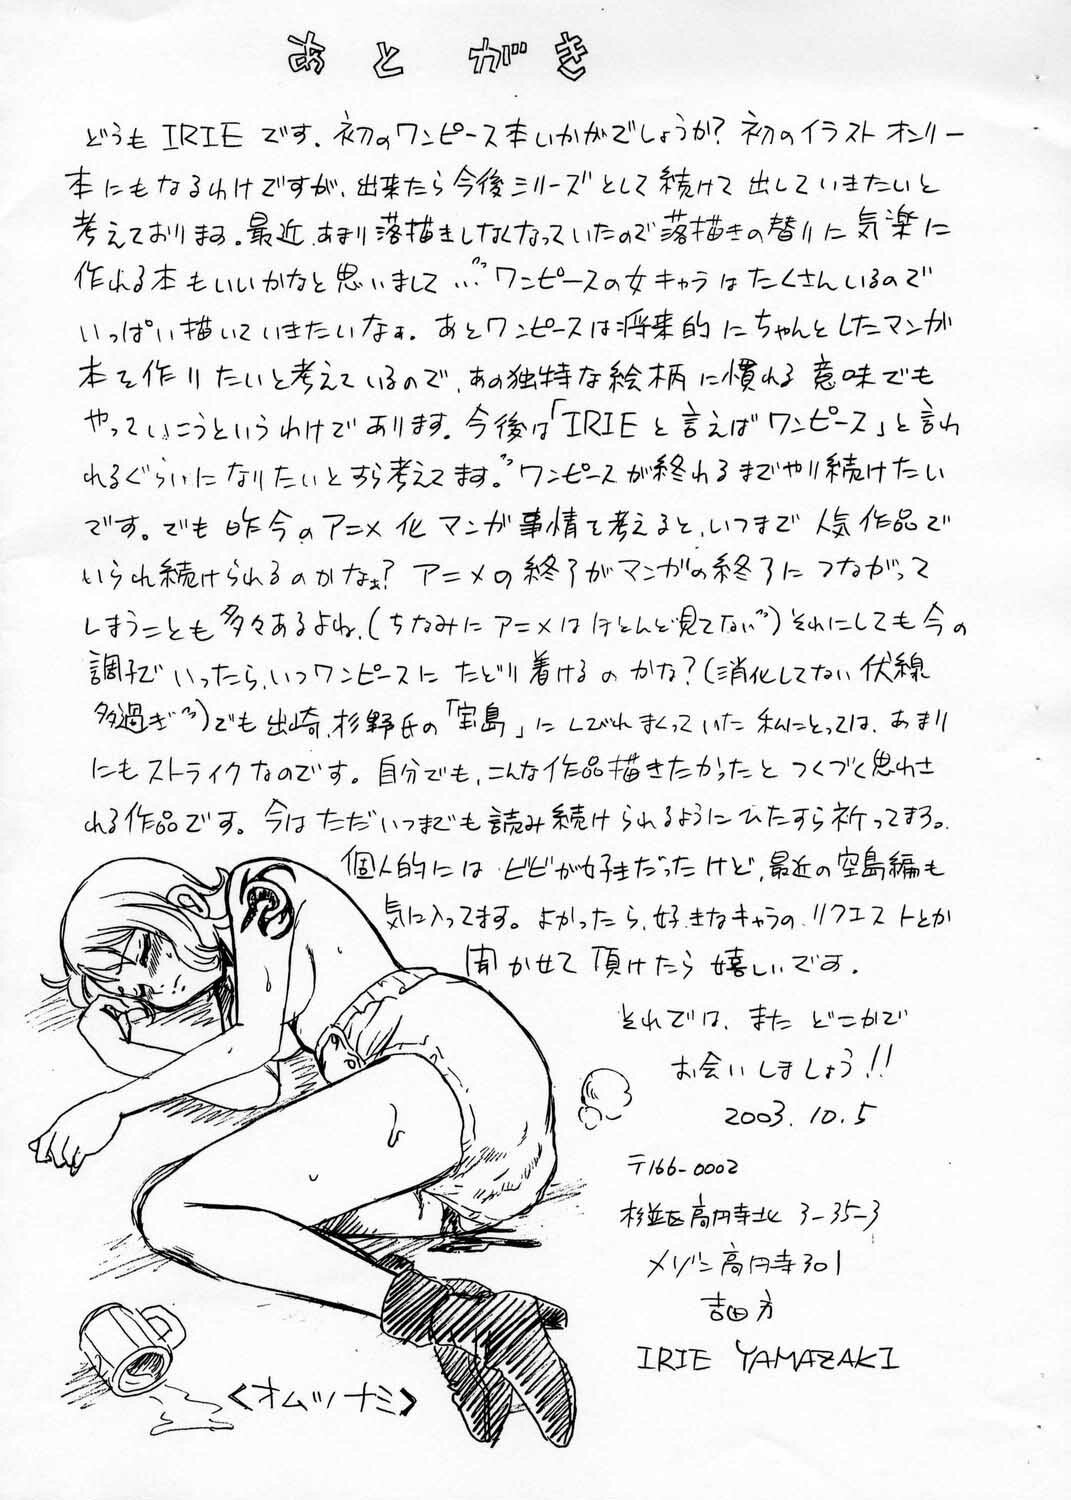 あとがき
どうもIRIEです。初のワンピース本いかがでしょうか?初のイラストオンリー
本にもなるわけですが、出来たら今後シリーズとして続けて出していきたいと
考えております。最近、あまり落描きしなくなっていたので落描きの替りに気楽に
作れる本もいいかなと思いまして…ワンピースの女キャラはたくさんいるので
いっぱい描いていきたいなぁ。あとワンピースは将来的にちゃんとしたマンガ
本を作りたいと考えているので、あの独特な絵柄に慣れる意味でも
やっていこうというわけであります。今後は「IRIEと言えばワンピース」と言わ
れるぐらいになりたいとすら考えてます。ワンピースが終わるまでやり続けたい
です。でも昨今のアニメ化マンガ事情を考えると、いつまで人気作品で
いられ続けられるのかなぁ?アニメの終了がマンガの終了につながって
しまうことも多々あるよね、(ちなみにアニメはほとんど見てない)それにしても今の
調子でいったら、いつワンピースにたどり着けるのかな?(消化してない伏線
多過ぎ)でも出崎、杉野氏の「宝島」にしびれまくっていた私にとっては、あまり
にもストライクなのです。自分でも、こんな作品描きたかったとつくづく思わさ
れる作品です。今はただいつまでも読み続けられるようにひたすら祈ってまつ。
個人的にはビビが好きだったけど、最近の空島編も
気に入ってます。よかったら、好きなキャラのリクエストとか
聞かせて頂けたら嬉しいです。
それでは、またどこかで
お会いしましょう!!
2003.10.5
〒166-0002
杉並区高円寺北3-35-3
メゾン高円寺301
吉田方
IRIE YAMAZAKI
<オムツナミ>